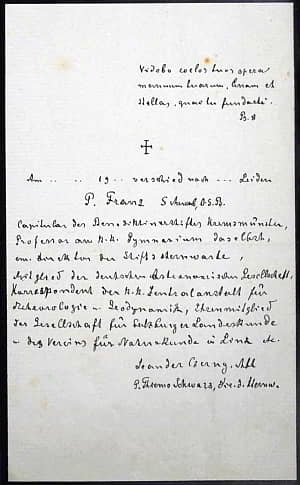 Videbo coelos tuos opera
manuum tuarum, lunam et
stellas, quae tu fundasti.
Ps. 8
Am .. .. 19 .. verschied nach ... Leiden
P. Franz Schwab, O.S.B.
Capitular des Benediktinerstiftes Kremsmünster,
Professor am k.k. Gymnasium daselbst,
em. Direktor der Stiftssternwarte,
Mitglied der deutschen Astronomischen Gesellschaft,
Korrespondent der k.k. Zentralanstalt für
Meteorologie u. Geodynamik, Ehrenmitglied
der Gesellschaft für Salzburger Landeskunde
u. des Vereins für Naturkunde in Linz etc.
Leander Czerny, Abt
P. Thiemo Schwarz, Dir. d. Sternw.